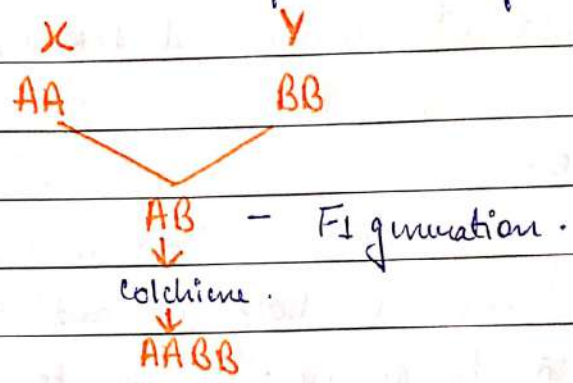 X Y
AA BB
AB - F1 generation.
Colchicine.
AABB